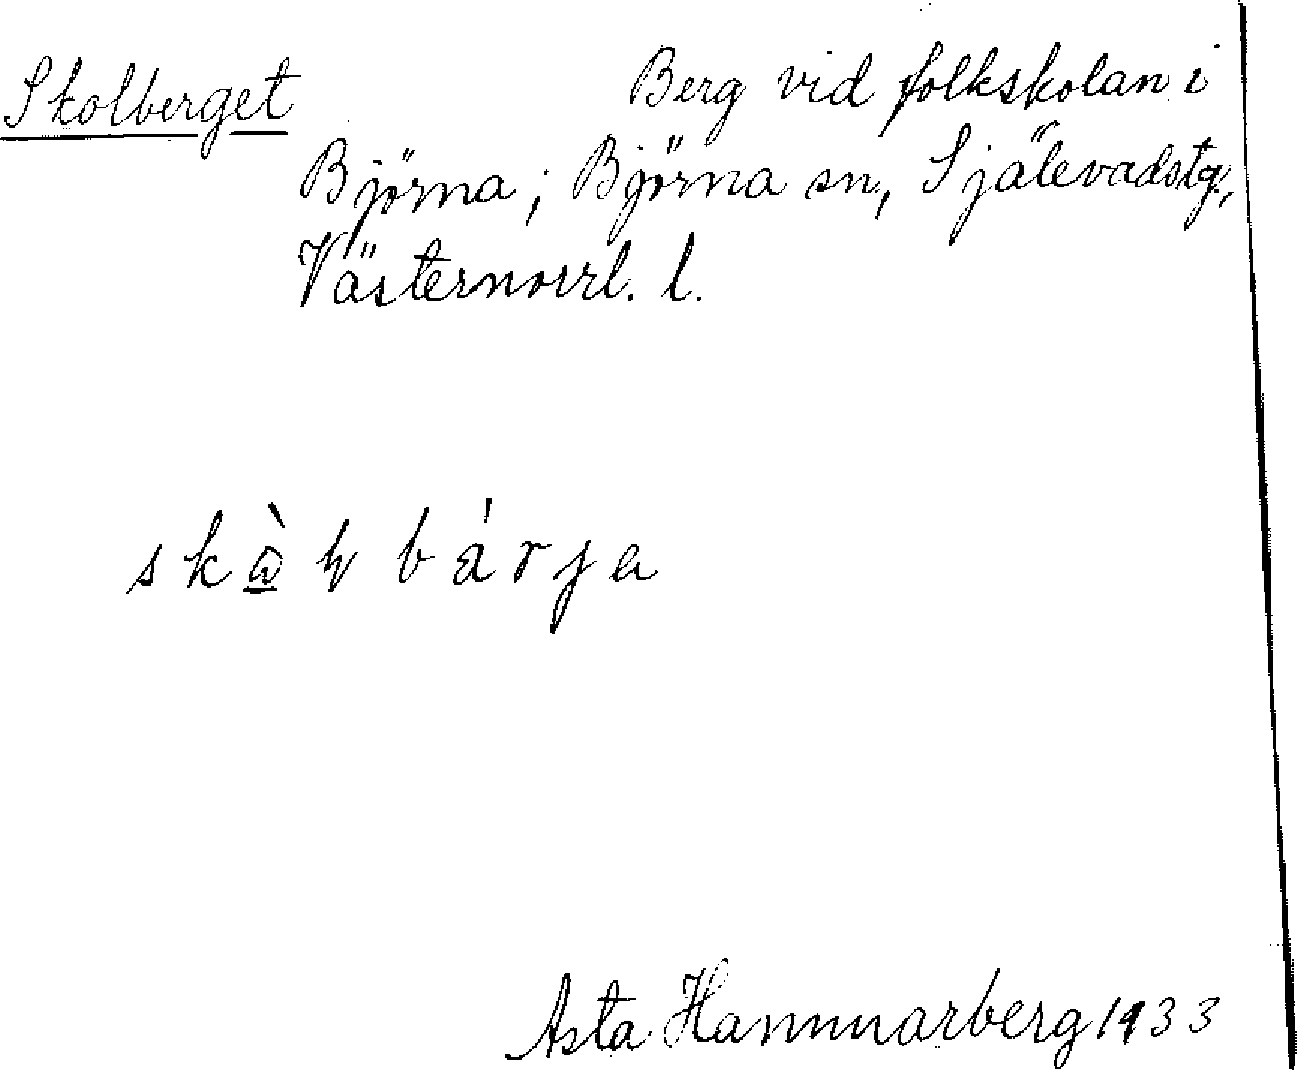 Skolberget Berg vid folkskolan i
Björna; Björna sn, Själevadstg.,
Västernorrl. l.
Asta Hammarberg 1933